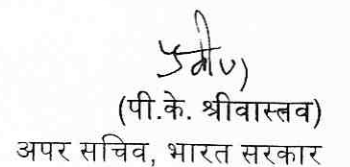 (पी.के. श्रीवास्तव)
अपर सचिव, भारत सरकार